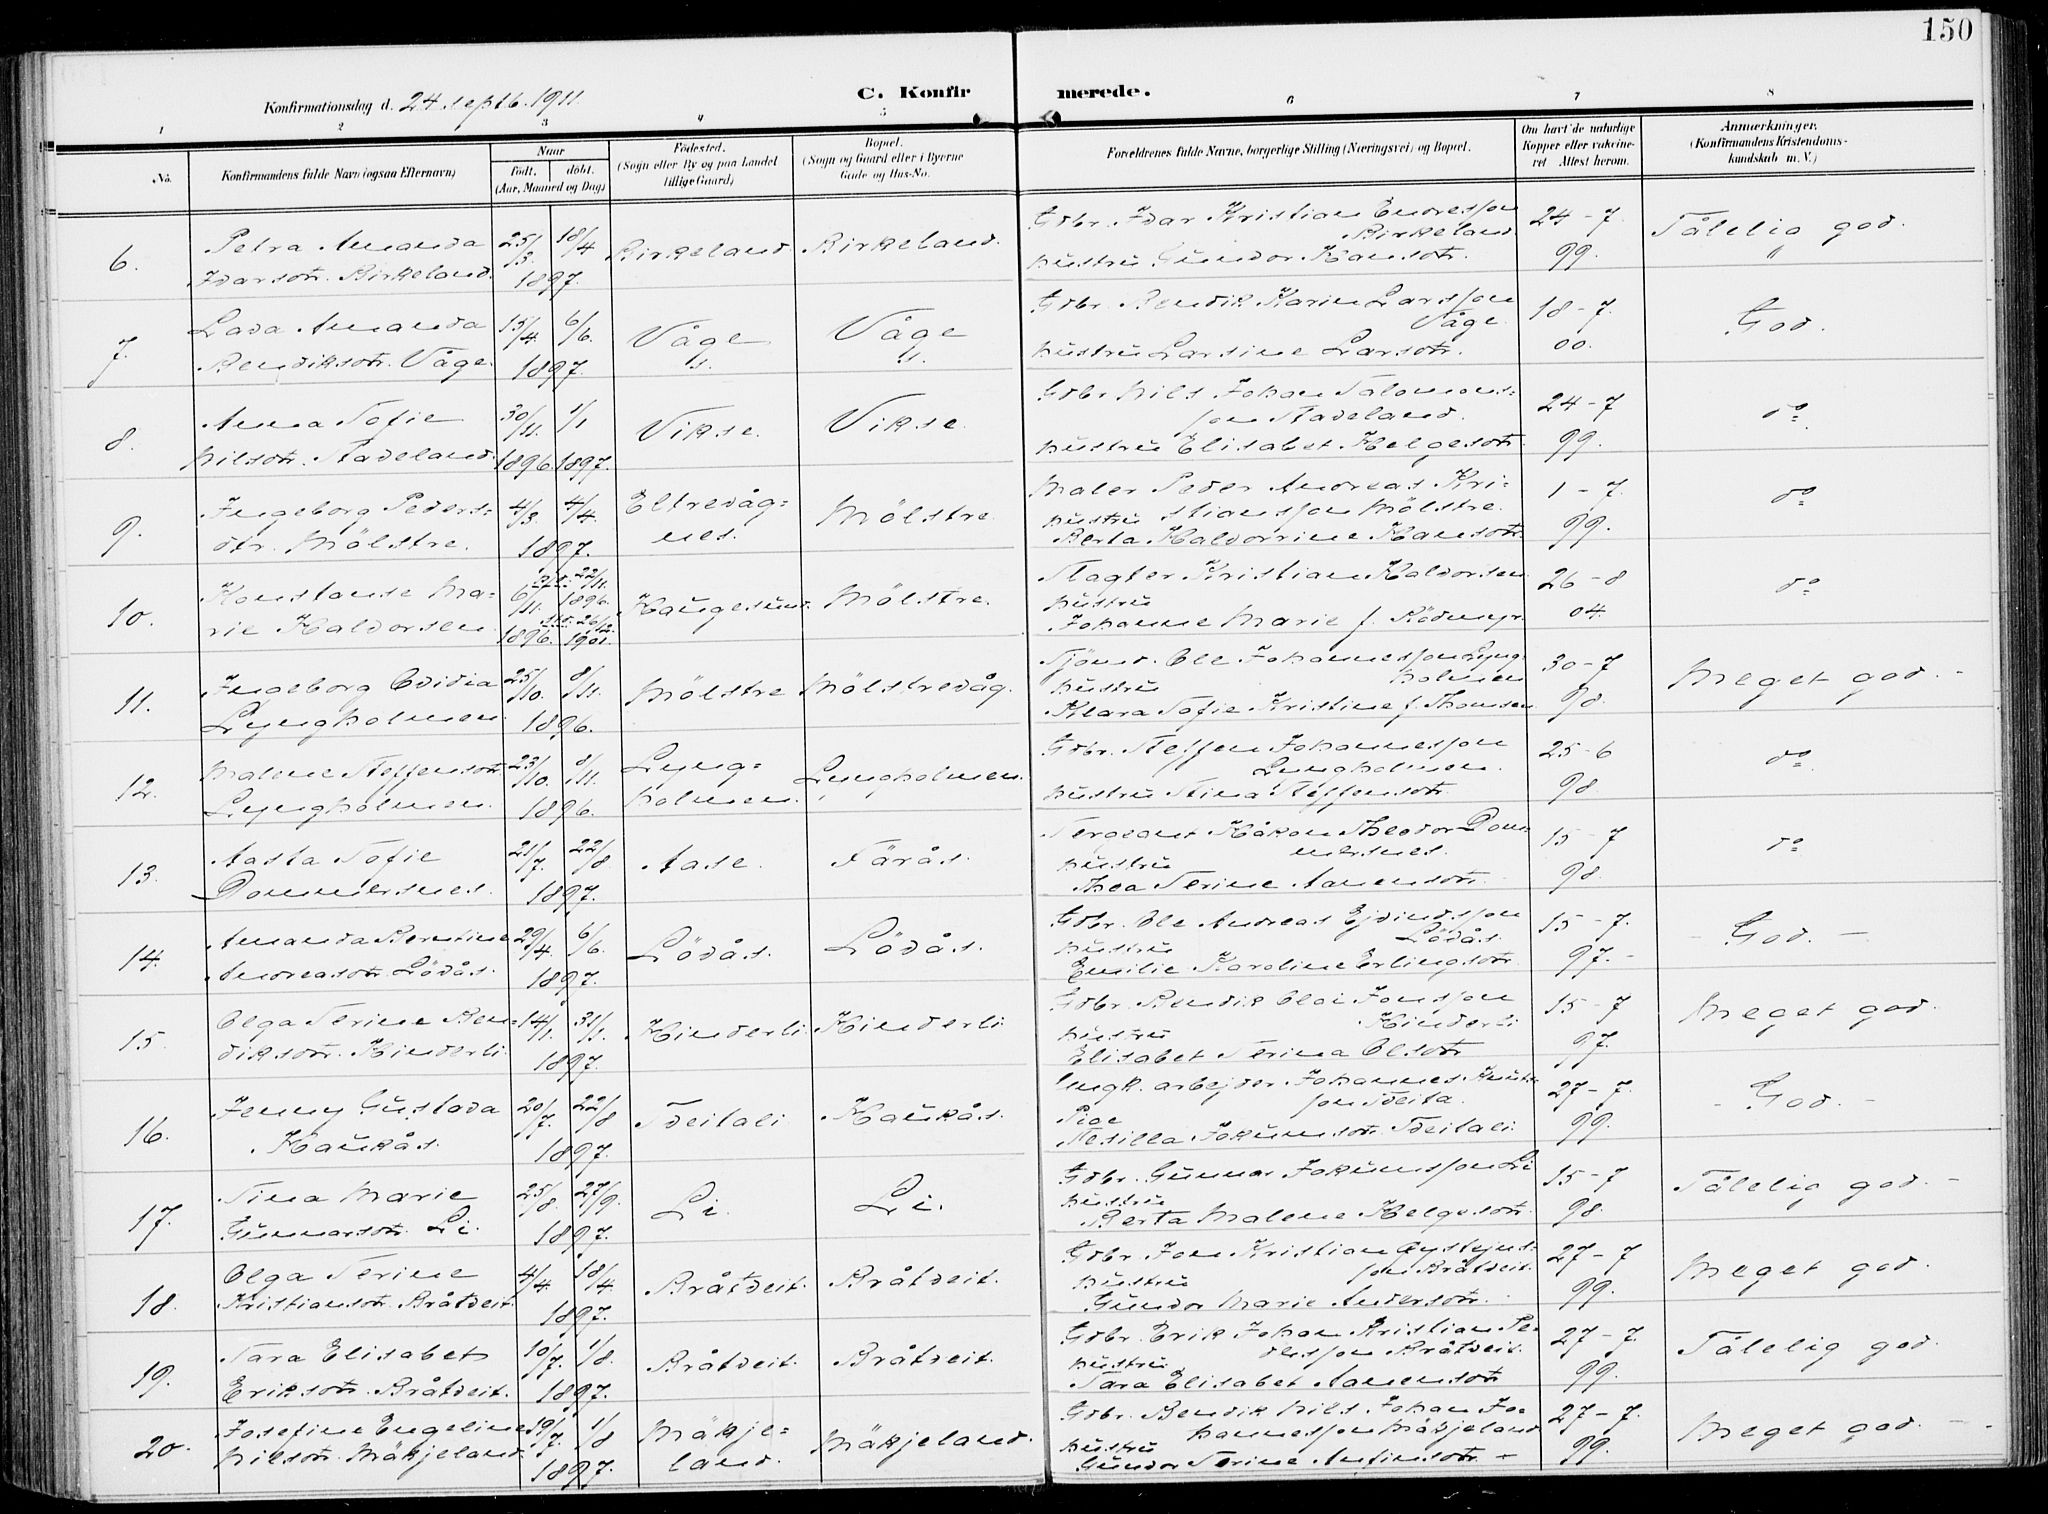 150
Konfirmationsdag d. 24. septb. 1911.
C. Konfirmerede.
1 2 3 4 5 6 7 8
No.
Konfirmandens fulde Navn (ogsaa Efternavn)
Naar
født. døbt.
(Aar, Maaned og Dag)
Fødested.
(Sogn eller By og paa Landet
tillige Gaard)
Bopæl.
(Sogn og Gaard eller i Byerne
Gade og Hus-No.
Forældrenes fulde Navne, borgerlige Stilling (Næringsvei) og Bopæl.
Om havt de naturlige
Kopper eller vakcine-
ret Attest herom.
Anmærkninger.
(Konfirmandens Kristendoms-
kundskab m. V.)
6. Petra Amanda
Idarsdtr. Birkeland.
25/3. 18/4
1897.
Birkeland. Birkeland.
Gdbr. Idar Kristian Endresson
Birkeland.
hustru Gundor Hansdtr.
24-7.
99.
Tålelig god.
"
7. Lava Amanda
Bendiksdtr. Våge.
15/4. 6/6.
1897.
Våge
s.
Våge
s.
Gdbr. Bendik Karin Larsson
Våge.
hustru Larsine Larsdtr.
18-7.
00.
God.
8. Anna Sofie
Nilsdtr. Stadeland.
30/11. 1/1
1896. 1897.
Vikse. Vikse.
Gdbr. Nils Johan Salomons-
son Stadeland.
hustru Elisabet Helgesdtr.
24-7
99.
do.
9. Ingeborg Peders-
dtr. Mölstre.
4/3. 4/4.
1897.
Eltrevåg-
nes.
Mölstre.
Maler Peder Andreas Kri-
hustru stiansson Mölstre.
Berta Haldorrine Hansdtr.
1-7.
99.
do
10. Konstanse Ma-
rie Haldorsen.
6/11. 22/11.
1896.
26/12.
1896. 1901.
Haugesund. Mölstre.
Slagter Kristian Haldorsen.
hustru
Johanne Marie f. Rödmyr.
26-8
04.
do
11. Ingeborg Ovidia
Lyngholmen.
25/10. 8/11.
1896.
Mölstre Mölstrevåg.
Sjömd. Ole Johannesson Lyng-
hustru holmen
Klara Sofie Kristine f. Thomsen
30-7
98.
Meget god.-
12. Malene Steffensdtr.
Lyngholmen.
23/10. 8/11.
1896.
Lyng-
holmen.
Lyngholmen.
Gdbr. Steffen Johannesson
Lyngholmen.
hustru Stina Steffensdtr.
25-6
98.
do.
13. Aasta Sofie
Dommersnes.
21/7. 22/8
1897.
Aase. Färås.
Sergeant Håkon Theodor Dom-
hustru mersnes.
Thea Serine Aanensdtr.
15-7
98.
do
14. Amanda Berntine
Andreasdtr. Lövås.
29/4. 6/6.
1897.
Lövås. Lövås.
Gdbr. Ole Andreas Ejvindsson
hustru Lövås.
Emilie Karoline Erlingsdtr.
15-7.
97.-
-God.-
15. Olga Serine Ben-
diksdtr. Hinderli.
14/1. 31/1.
1897.
Hinderli. Hinderli.
Gdbr. Bendik Olai Jonsson
hustru Hinderli
Elisabet Serina Olsdtr.
15-7
97.
Meget god.
16. Jenny Gustava
Haukås.
20/7. 22/8
1897.
Tveitali Haukås.
Ungk. arbejder Johannes Knut-
son Tveita.
Pige
Resilla Jokumsdtr. Tveitali.
27-7.
99.
-God.-
17. Sina Marie
Gunnarsdtr. Li.
25/8. 27/9.
1897.
Li. Li.
Gdbr. Gunnar Jokumsson Li
hustru
Berta Malene Helgesdtr.
15-7
98.
Tålelig god.-
18. Olga Serine
Kristiansdtr. Bråtveit.
4/4. 18/4.
1897.
Bråtveit. Bråtveit.
Gdbr. Jon Kristian Øystejns-
hustru son Bråtveit.
Gundor Marie Andersdtr.
27-7
99.
Meget god.
19. Sara Elisabet
Eriksdtr. Bråtveit.
10/7. 1/8.
1897.
Bråtveit. Bråtveit.
Gdbr. Erik Johan Kristian Pe-
hustru dersson Bråtveit.
Sara Elisabet Aanensdtr
27-7
99.
Tålelig god.
20. Josefine Engeline
Nilsdtr. Mäkjeland.
19/7. 1/8
1897.
Mäkje-
land.
Mäkjeland.
Gdbr. Bendik Nils Johan Jo-
hustru hannesson Mäkjeland
Gundor Serine Anfinsdtr.-
27-7.
99.
Meget god.-